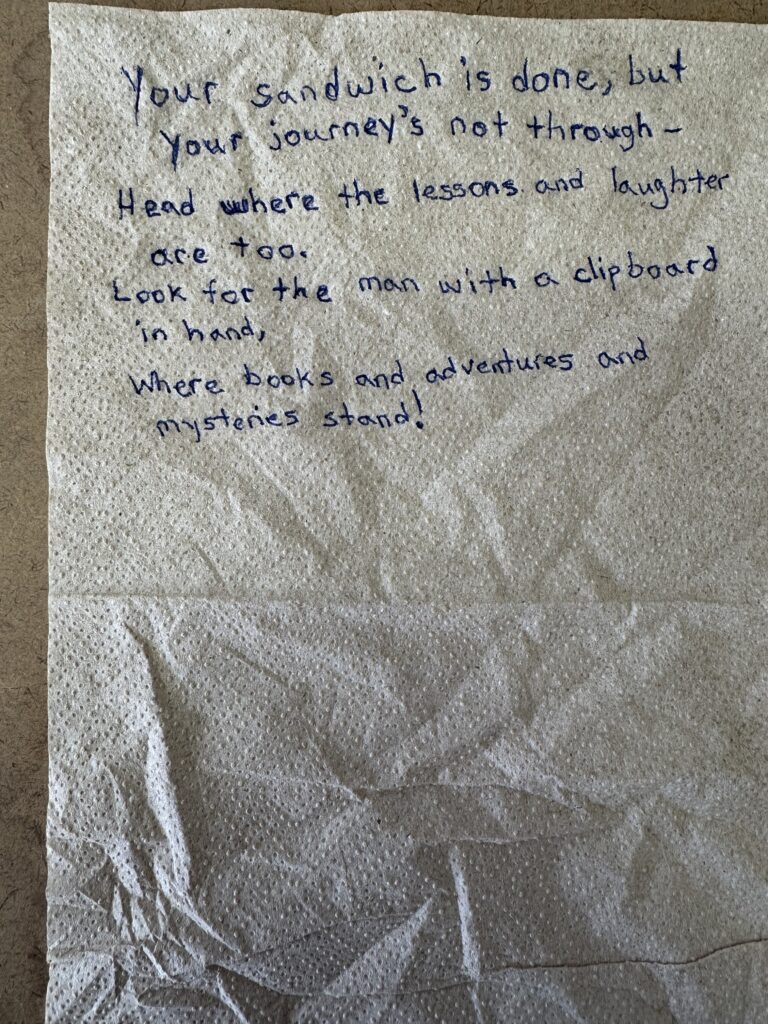 Your sandwich is done, but
your journey's not through-
Head where the lessons and laughter
are too.
Look for the man with a clipboard
in hand,
Where books and adventures and
mysteries stand!